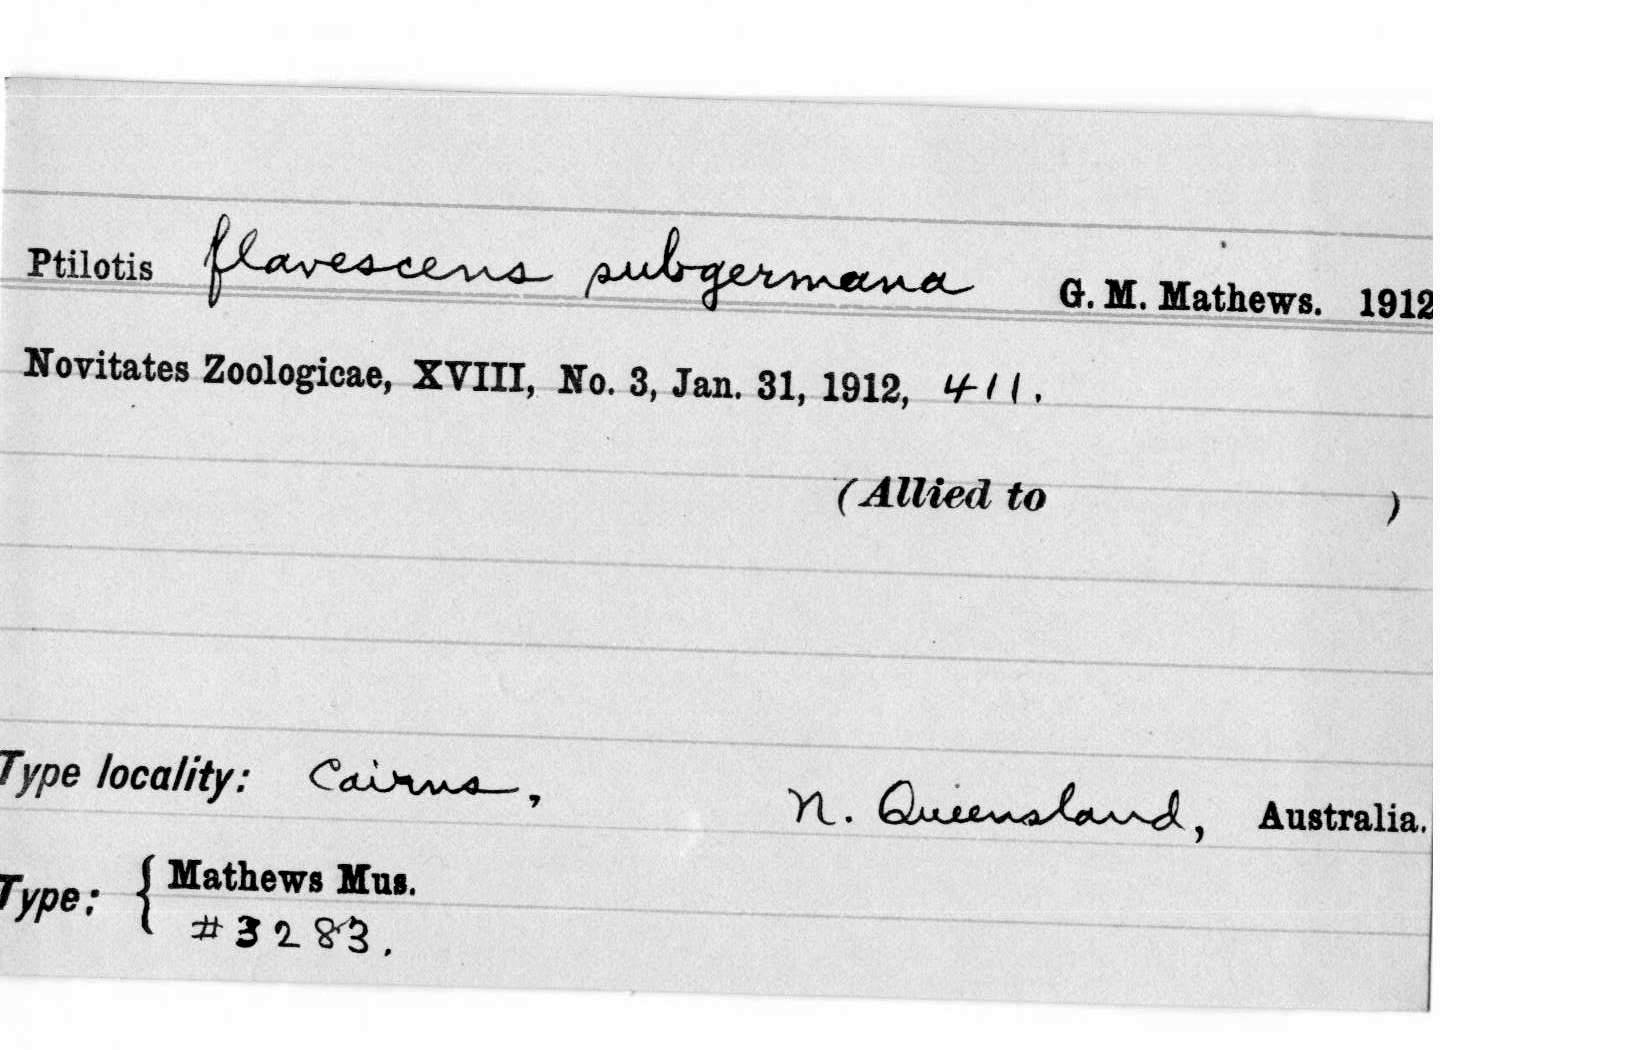 Ptilotis flavescens subgermana G. M. Mathews. 1912
Novitates Zoologicae, XVIII, No. 3, Jan. 31, 1912, 411.
(Allied to )
Type locality: Cairns, N. Queensland, Australia.
Type: { Mathews Mus.
#3283.